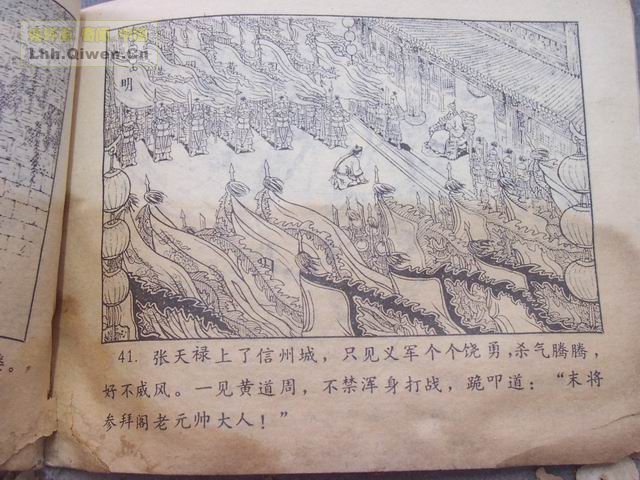 Lhh.Qiwen.Cn
明
41. 张天禄上了信州城，只见义军个个饶勇，杀气腾腾，
好不威风。一见黄道周，不禁浑身打战，跪叩道：“末将
参拜阁老元帅大人！”